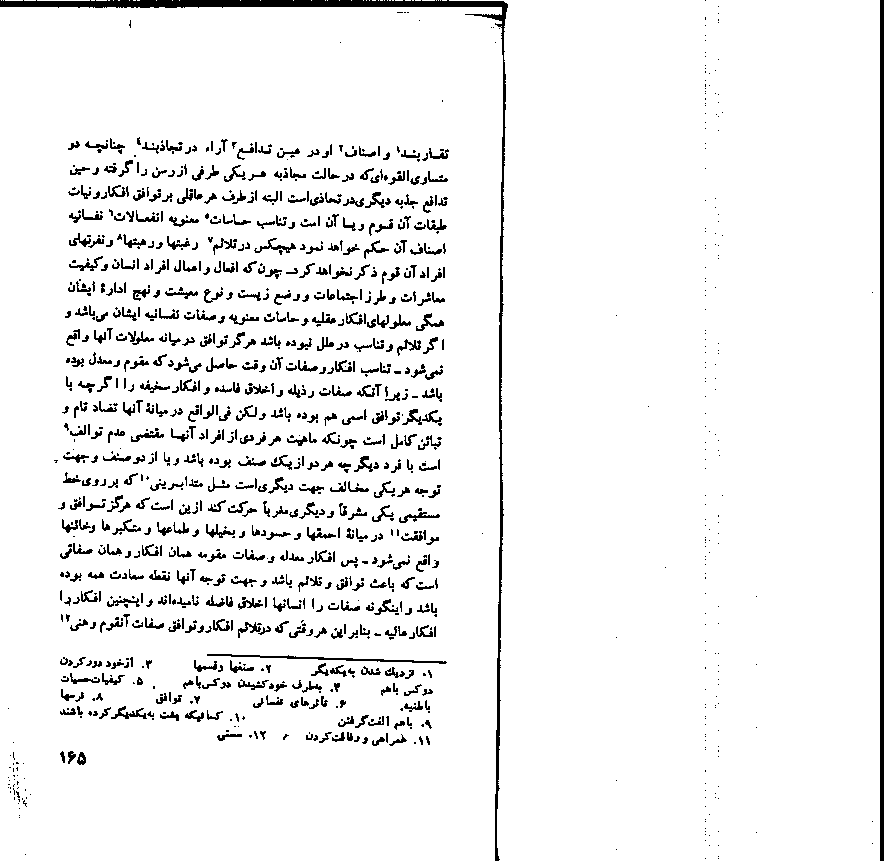 تقاربند۱ و اصناف۲ او در عین تدافع۳ آراء در تجاذبند۴ چنانچه دو
متساوی‌القوه‌ای‌که در حالت مجاذبه هر یکی طرفی از رسن را گرفته و حین
تدافع جذبه دیگری در تحاذی است البته از طرف هر عاقلی بر توافق افکار و نیات
طبقات آن قوم و یا آن امت و تناسب حاسات۵ معنویه انفعالات۶ نفسانیه
اصناف آن حکم خواهد نمود هیچکس در تلائم۷ رغبتها و رهبتها۸ و نفرتهای
افراد آن قوم ذکر نخواهد کرد ــ چون‌که افعال و اعمال افراد انسان و کیفیت
معاشرات و طرز اجتماعات و وضع زیست و نوع معیشت و نهج ادارهٔ ایشان
همگی معلولهای افکار عقلیه و حاسات معنویه و صفات نفسانیه ایشان می‌باشد و
اگر تلائم و تناسب در علل نبوده باشد هرگز توافق در میانه معلولات آنها واقع
نمی‌شود ــ تناسب افکار و صفات آن وقت حاصل می‌شود که مقوم و معدل بوده
باشد ــ زیرا آنکه صفات رذیله و اخلاق فاسده و افکار سخیفه را اگرچه با
یکدیگر توافق اسمی هم بوده باشد ولکن فی‌الواقع در میانهٔ آنها تضاد تام و
تبائن کامل است چونکه ماهیت هر فردی از افراد آنها مقتضی عدم توالف۹
است با فرد دیگر چه هر دو از یک صنف بوده باشد و یا از دو صنف و جهت
توجه هر یکی مخالف جهت دیگری است مثل متدابرینی۱۰ که بر روی خط
مستقیمی یکی مشرقاً و دیگری مغرباً حرکت کند ازین است که هرگز توافق و
موافقت۱۱ در میانهٔ احمقها و حسودها و بخیلها و طماعها و متکبرها وخائنها
واقع نمی‌شود ــ پس افکار معدله و صفات مقومه همان افکار و همان صفاتی
است که باعث توافق و تلائم باشد و جهت توجه آنها نقطه سعادت همه بوده
باشد و اینگونه صفات را انسانها اخلاق فاضله نامیده‌اند و اینچنین افکار را
افکار عالیه ــ بنابراین هر وقتی که در تلائم افکار و توافق صفات آنقوم وهنی۱۲
۱. نزدیک شدن به‌یکدیگر ۲. صنفها و قسمها ۳. ازخود دورکردن
دوکس باهم ۴. بطرف خودکشیدن دوکس باهم ۵. کیفیات‌حسیات
باطنیه. ۶. تأثرهای نفسانی ۷. توافق ۸. ترسها
۹. باهم الفت‌گرفتن ۱۰. کسانیکه پشت به‌یکدیگر کرده باشند
۱۱. همراهی و رفاقت‌کردن ۱۲. سستی
۱۶۵